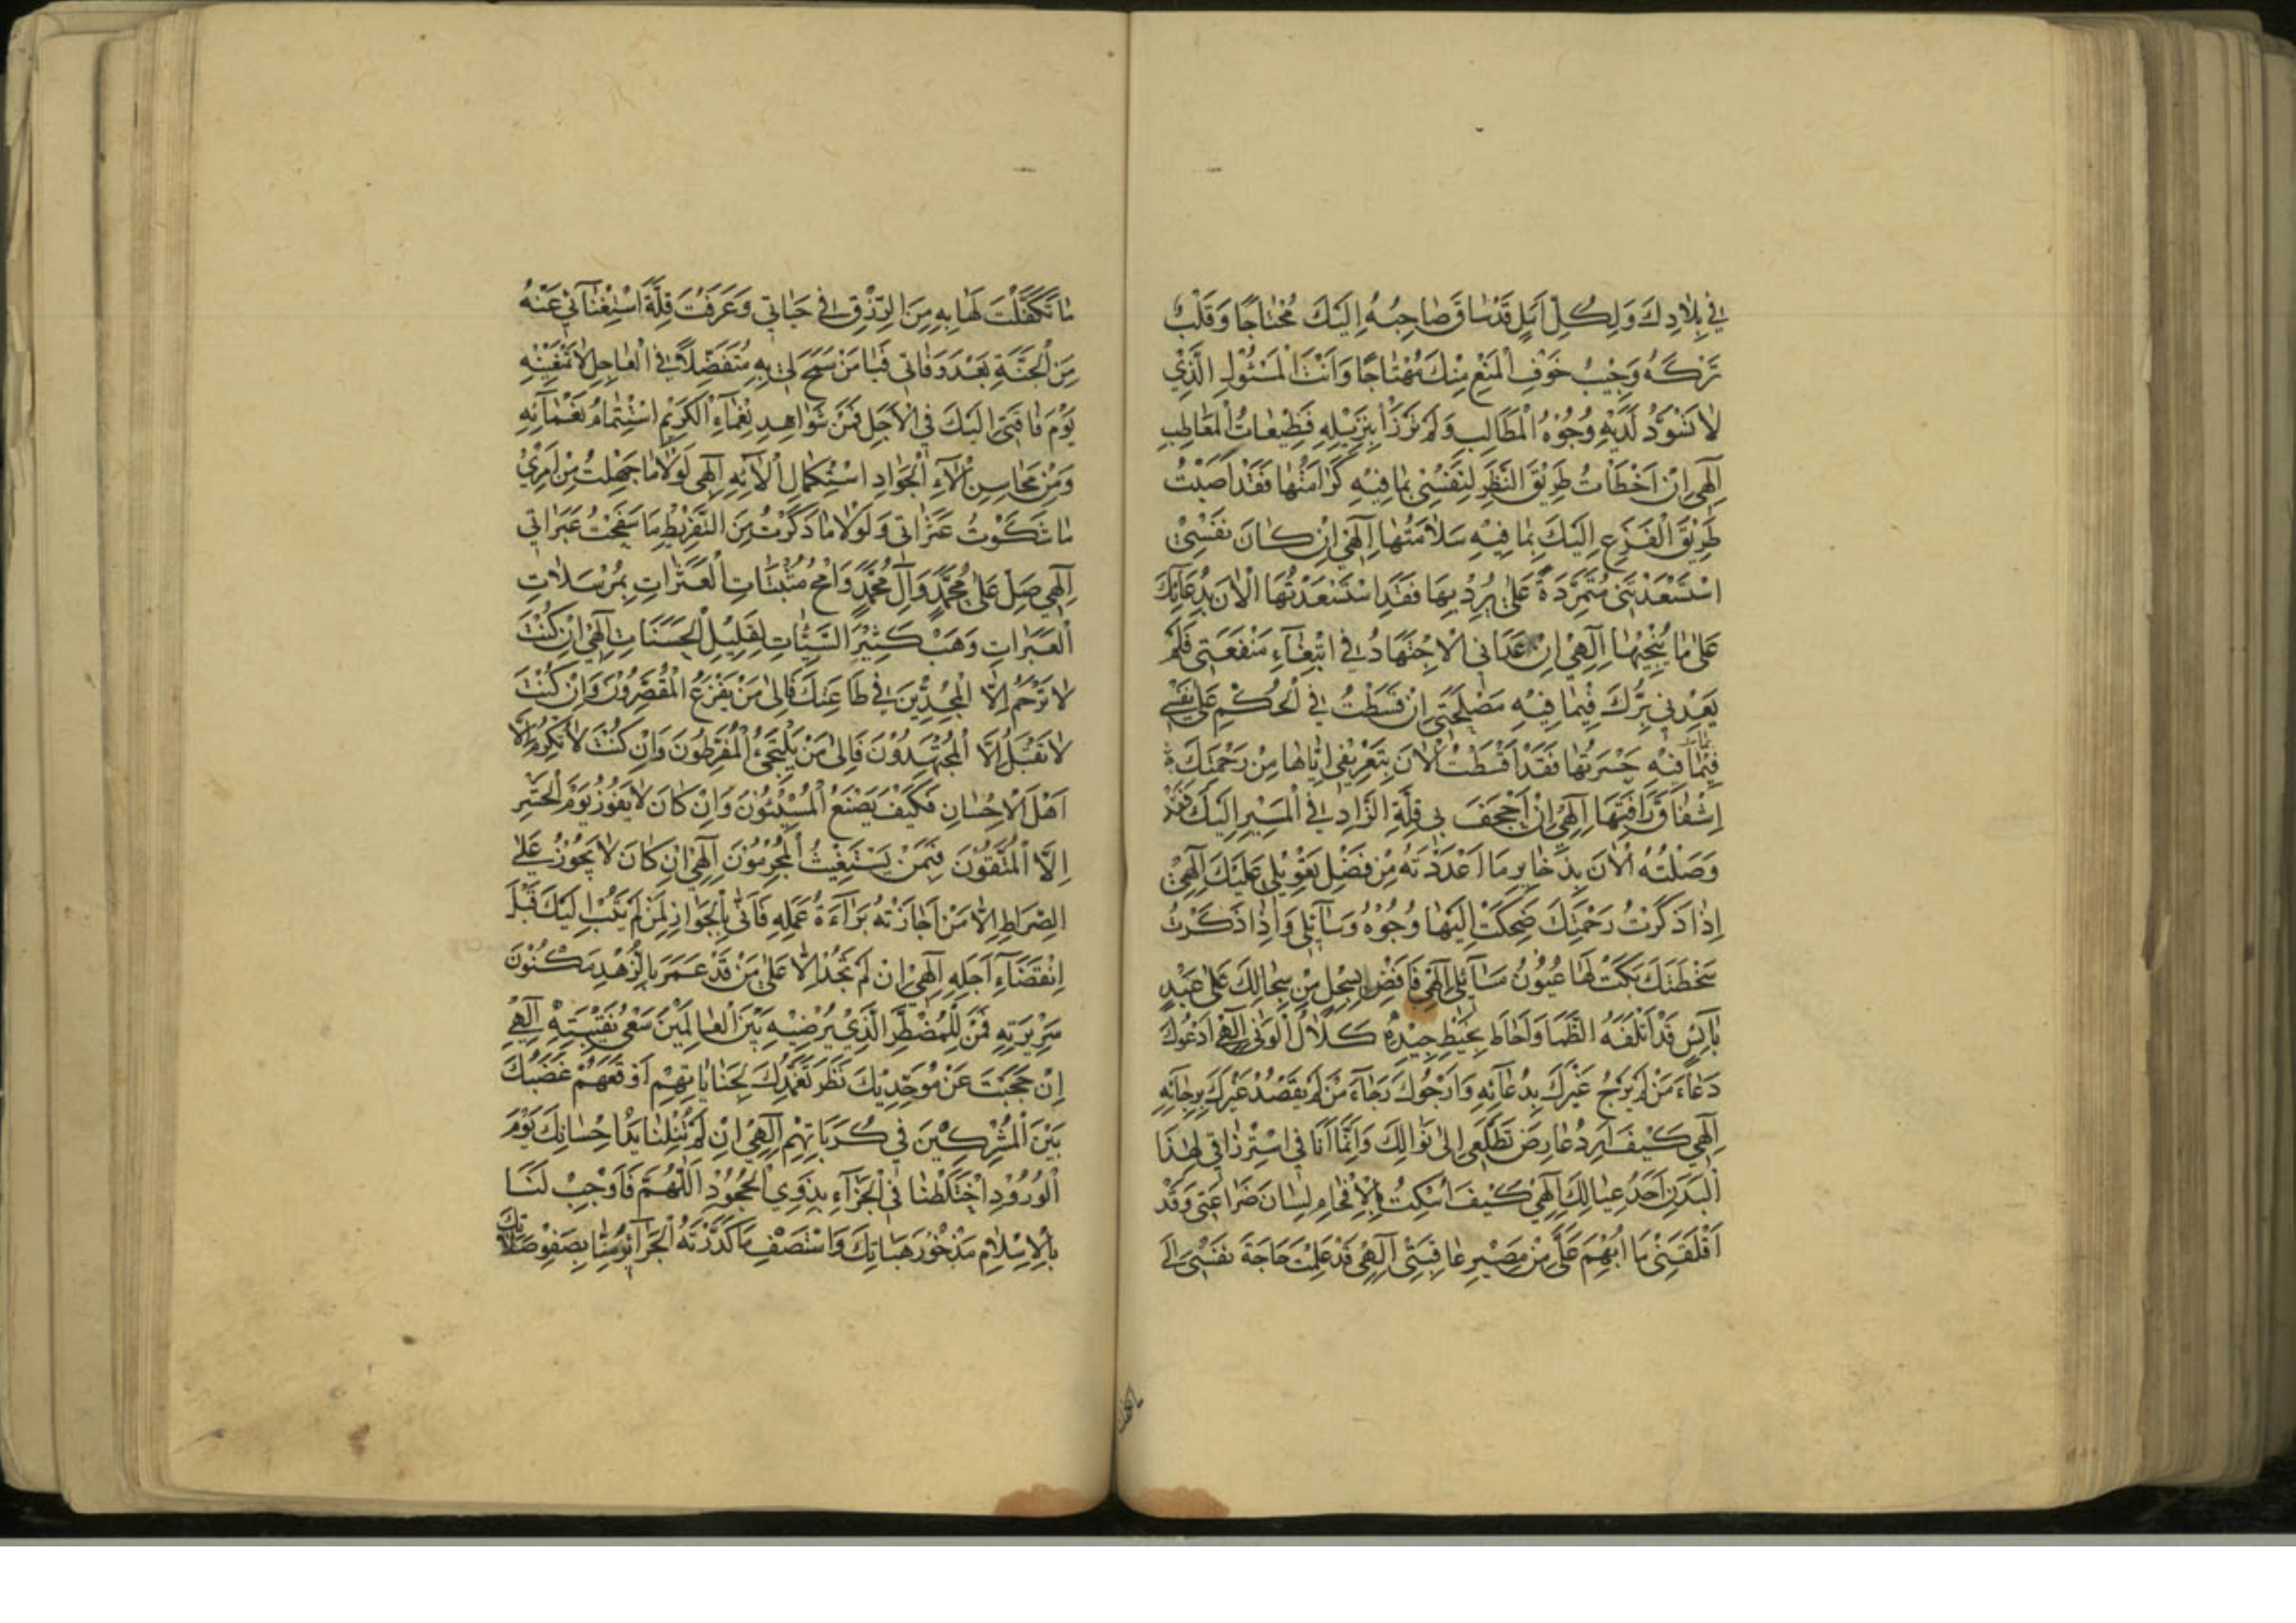 في بِلادِكَ وَلِكُلِّ اَمَلٍ قَدْ سٰاقَ صٰاحِبُهُ اِلَيْكَ مُحْتٰاجًا وَقَلْبٌ
تَرَكَهُ وَجِيْبُ خَوْفِ الْمَنْعِ مِنْكَ مُهْتٰاجًا وَاَنْتَ الْمَسْئُوْلُ الَّذِيْ
لٰا تَسْوَدُّ لَدَيْهِ وُجُوْهُ الْمَطَالِبِ وَلَمْ تَرْزَأْ بِنَزِيْلِهِ فَظِيْعٰاتُ الْمَعَاطِبِ
اِلٰهِي اِنْ اَخْطَأْتُ طَرِيْقَ النَّظَرِ لِنَفْسِيْ بِمٰا فِيْهِ كَرٰامَتُهٰا فَقَدْ اَصَبْتُ
طَرِيْقَ الْفَزَعِ اِلَيْكَ بِمٰا فِيْهِ سَلٰامَتُهٰا اِلٰهِيْ اِنْ كٰانَ نَفْسِيْ
اسْتَسْعَدَتْنِيْ مُتَمَرِّدَةً عَلٰى مٰا يُرْدِيْهَا فَقَدِ اسْتَسْعَدْتُهَا الْاٰنَ بِدُعٰائِكَ
عَلٰى مٰا يُنْجِيْهٰا اِلٰهِيْ اِنْ عَدَانِى الْاِجْتِهَادُ فِي ابْتِغٰاءِ مَنْفَعَتِي فَلَمْ
يَعْدُنِي بِرُّكَ فِيْمٰا فِيْهِ مَصْلَحَتِي اِنْ قَسَطْتُ فِي الْحُكْمِ عَلٰى نَفْسِيْ
فِيْمَا فِيْهِ حَسْرَتُهٰا فَقَدْ اَقْسَطْتُ الْاٰنَ بِتَعْرِيْفِى اِيّٰاهٰا مِنْ رَحْمَتِكَ
اِشْفٰاقَ رَأْفَتِهَا اِلٰهِيْ اِنْ اَجْحَفَ بِي قِلَّةُ الزّٰادِ فِي الْمَسِيْرِ اِلَيْكَ فَقَدْ
وَصَلْتُهُ الْاٰنَ بِذَخٰايِرِ مَا اَعْدَدْتُهُ مِنْ فَضْلِ تَعْوِيْلِي عَلَيْكَ اِلٰهِيْ
اِذٰا ذَكَرْتُ رَحْمَتَكَ ضَحِكَتْ اِلَيْهٰا وُجُوْهُ وَسٰآئِلِي وَاِذٰا ذَكَرْتُ
سَخْطَتَكَ بَكَتْ لَهٰا عُيُوْنُ مَسٰآئِلِي اِلٰهِيْ فَاَفِضْ بِسَجْلٍ مِنْ سِجٰالِكَ عَلٰى عَبْدٍ
بٰآئِسٍ قَدْ اَتْلَفَهُ الظَّمَا وَاَحٰاطَ بِخَيْطِ جِيْدِهِ كَلٰالُ الْوَنٰى اِلٰهِيْ اَدْعُوْكَ
دُعٰاءَ مَنْ لَمْ يَرْجُ غَيْرَكَ بِدُعٰآئِهِ وَاَرْجُوكَ رَجٰآءَ مَنْ لَمْ يَقْصُدْ غَيْرَكَ بِرَجٰآئِهِ
اِلٰهِي كَيْفَ اَرُدُّ عٰارِضَ تَطَلُّعِي اِلٰى نَوَالِكَ وَاِنَّمٰا اَنَا فِي اسْتِرْزٰاقِي لِهٰذَا
الْبَدَنِ اَحَدُ عِيٰالِكَ اِلٰهِيْ كَيْفَ اُسْكِتُ بِالْاِفْحٰامِ لِسٰانَ ضَرٰاعَتِي وَقَدْ
اَقْلَقَنِيْ مَا اُبْهِمَ عَلَيَّ مِنْ مَصِيْرِ عٰاقِبَتِيْ اِلٰهِيْ قَدْ عَلِمْتَ حَاجَةَ نَفْسِيْ اِلٰى
مٰا تَكَفَّلْتَ لَهٰا بِهِ مِنَ الرِّزْقِ فِي حَيٰاتِي وَعَرَفْتَ قِلَّةَ اسْتِغْنٰآئِي عَنْهُ
مِنَ الْجَنَّةِ بَعْدَ وَفٰاتِي فَيٰا مَنْ سَمَحَ لِي بِهِ مُتَفَضِّلًا فِي الْعٰاجِلِ لٰا تَمْنَعْنِيْهِ
يَوْمَ فٰاقَتِيْ اِلَيْكَ فِي الْاٰجِلِ فَمِنْ شَوٰاهِدِ نَعْمٰاءِ الْكَرِيْمِ اسْتِتْمٰامُ نَعْمٰآئِهِ
وَمِنْ مَحٰاسِنِ اٰلٰآءِ الْجَوَادِ اسْتِكْمٰالُ اٰلٰائِهِ اِلٰهِي لَوْلٰا مٰا جَهِلْتُ مِنْ اَمْرِيْ
مٰا شَكَوْتُ عَثَرٰاتِي وَلَوْلٰا مٰا ذَكَرْتُ مِنَ التَّفْرِيْطِ مَا سَفَحْتُ عَبَرٰاتِي
اِلٰهِي صَلِّ عَلٰى مُحَمَّدٍ وَاٰلِ مُحَمَّدٍ وَامْحُ مُثْبَتٰاتِ الْعَثَرٰاتِ بِمُرْسَلٰاتِ
الْعَبَرٰاتِ وَهَبْ كَثِيْرَ السَّيِّئٰاتِ لِقَلِيْلِ الْحَسَنَاتِ اِلٰهِيْ اِنْ كُنْتَ
لٰا تَرْحَمُ اِلَّا الْمُجِدِّيْنَ فِي طٰاعَتِكَ فَاِلٰى مَنْ يَفْزَعُ الْمُقَصِّرُوْنَ وَاِنْ كُنْتَ
لٰا تَقْبَلُ اِلَّا الْمُجْتَهِدُوْنَ فَاِلٰى مَنْ يَلْتَجِئُ الْمُفَرِّطُونَ وَاِنْ كُنْتَ لٰا تُكْرِمُ اِلَّا
اَهْلَ الْاِحْسٰانِ فَكَيْفَ يَصْنَعُ الْمُسِيْئُوْنَ وَاِنْ كٰانَ لٰا يَفُوْزُ يَوْمَ الْحَشْرِ
اِلَّا الْمُتَّقُوْنَ فَبِمَنْ يَسْتَغِيْثُ الْمُجْرِمُوْنَ اِلٰهِيْ اِنْ كَانَ لٰا يَجُوْزُ عَلَى
الصِّرَاطِ اِلّٰا مَنْ اَجٰازَتْهُ بَرَآءَةُ عَمَلِهِ فَاَنّٰى بِالْجَوَازِ لِمَنْ لَمْ يَتُبْ اِلَيْكَ قَبْلَ
اِنْقِضَآءِ اَجَلِهِ اِلٰهِيْ اِنْ لَمْ تَجُدْ اِلّٰا عَلٰى مَنْ قَدْ عَمَرَ بِالزُّهْدِ مَكْنُوْنَ
سَرِيْرَتِهِ فَمَنْ لِلْمُضْطَرِّ الَّذِيْ يُرْضِيْهِ بَيْنَ الْعٰالَمِيْنَ سَعْيُ نَقِيْبَتِهِ اِلٰهِيْ
اِنْ حَجَبْتَ عَنْ مُوَحِّدِيْكَ نَظَرَ تَغَمُّدِكَ لِجَنٰايٰاتِهِمْ اَوْقَعَهُمْ غَضَبُكَ
بَيْنَ الْمُشْرِكِيْنَ فِي كُرُبَاتِهِمْ اِلٰهِيْ اِنْ لَمْ تُنِلْنٰا يَدُ اِحْسٰانِكَ يَوْمَ
الْوُرُوْدِ اخْتَلَطْنٰا فِي الْجَزَآءِ بِذَوِي الْجُحُوْدِ اَللّٰهُمَّ فَاَوْجِبْ لَنَا
بِالْاِسْلٰامِ مَذْخُوْرَ هِبَاتِكَ وَاسْتَصْفِ مٰا كَدَّرَتْهُ الْجَرٰآئِرُ مِنّٰا بِصَفْوِ صَلٰاتِكَ